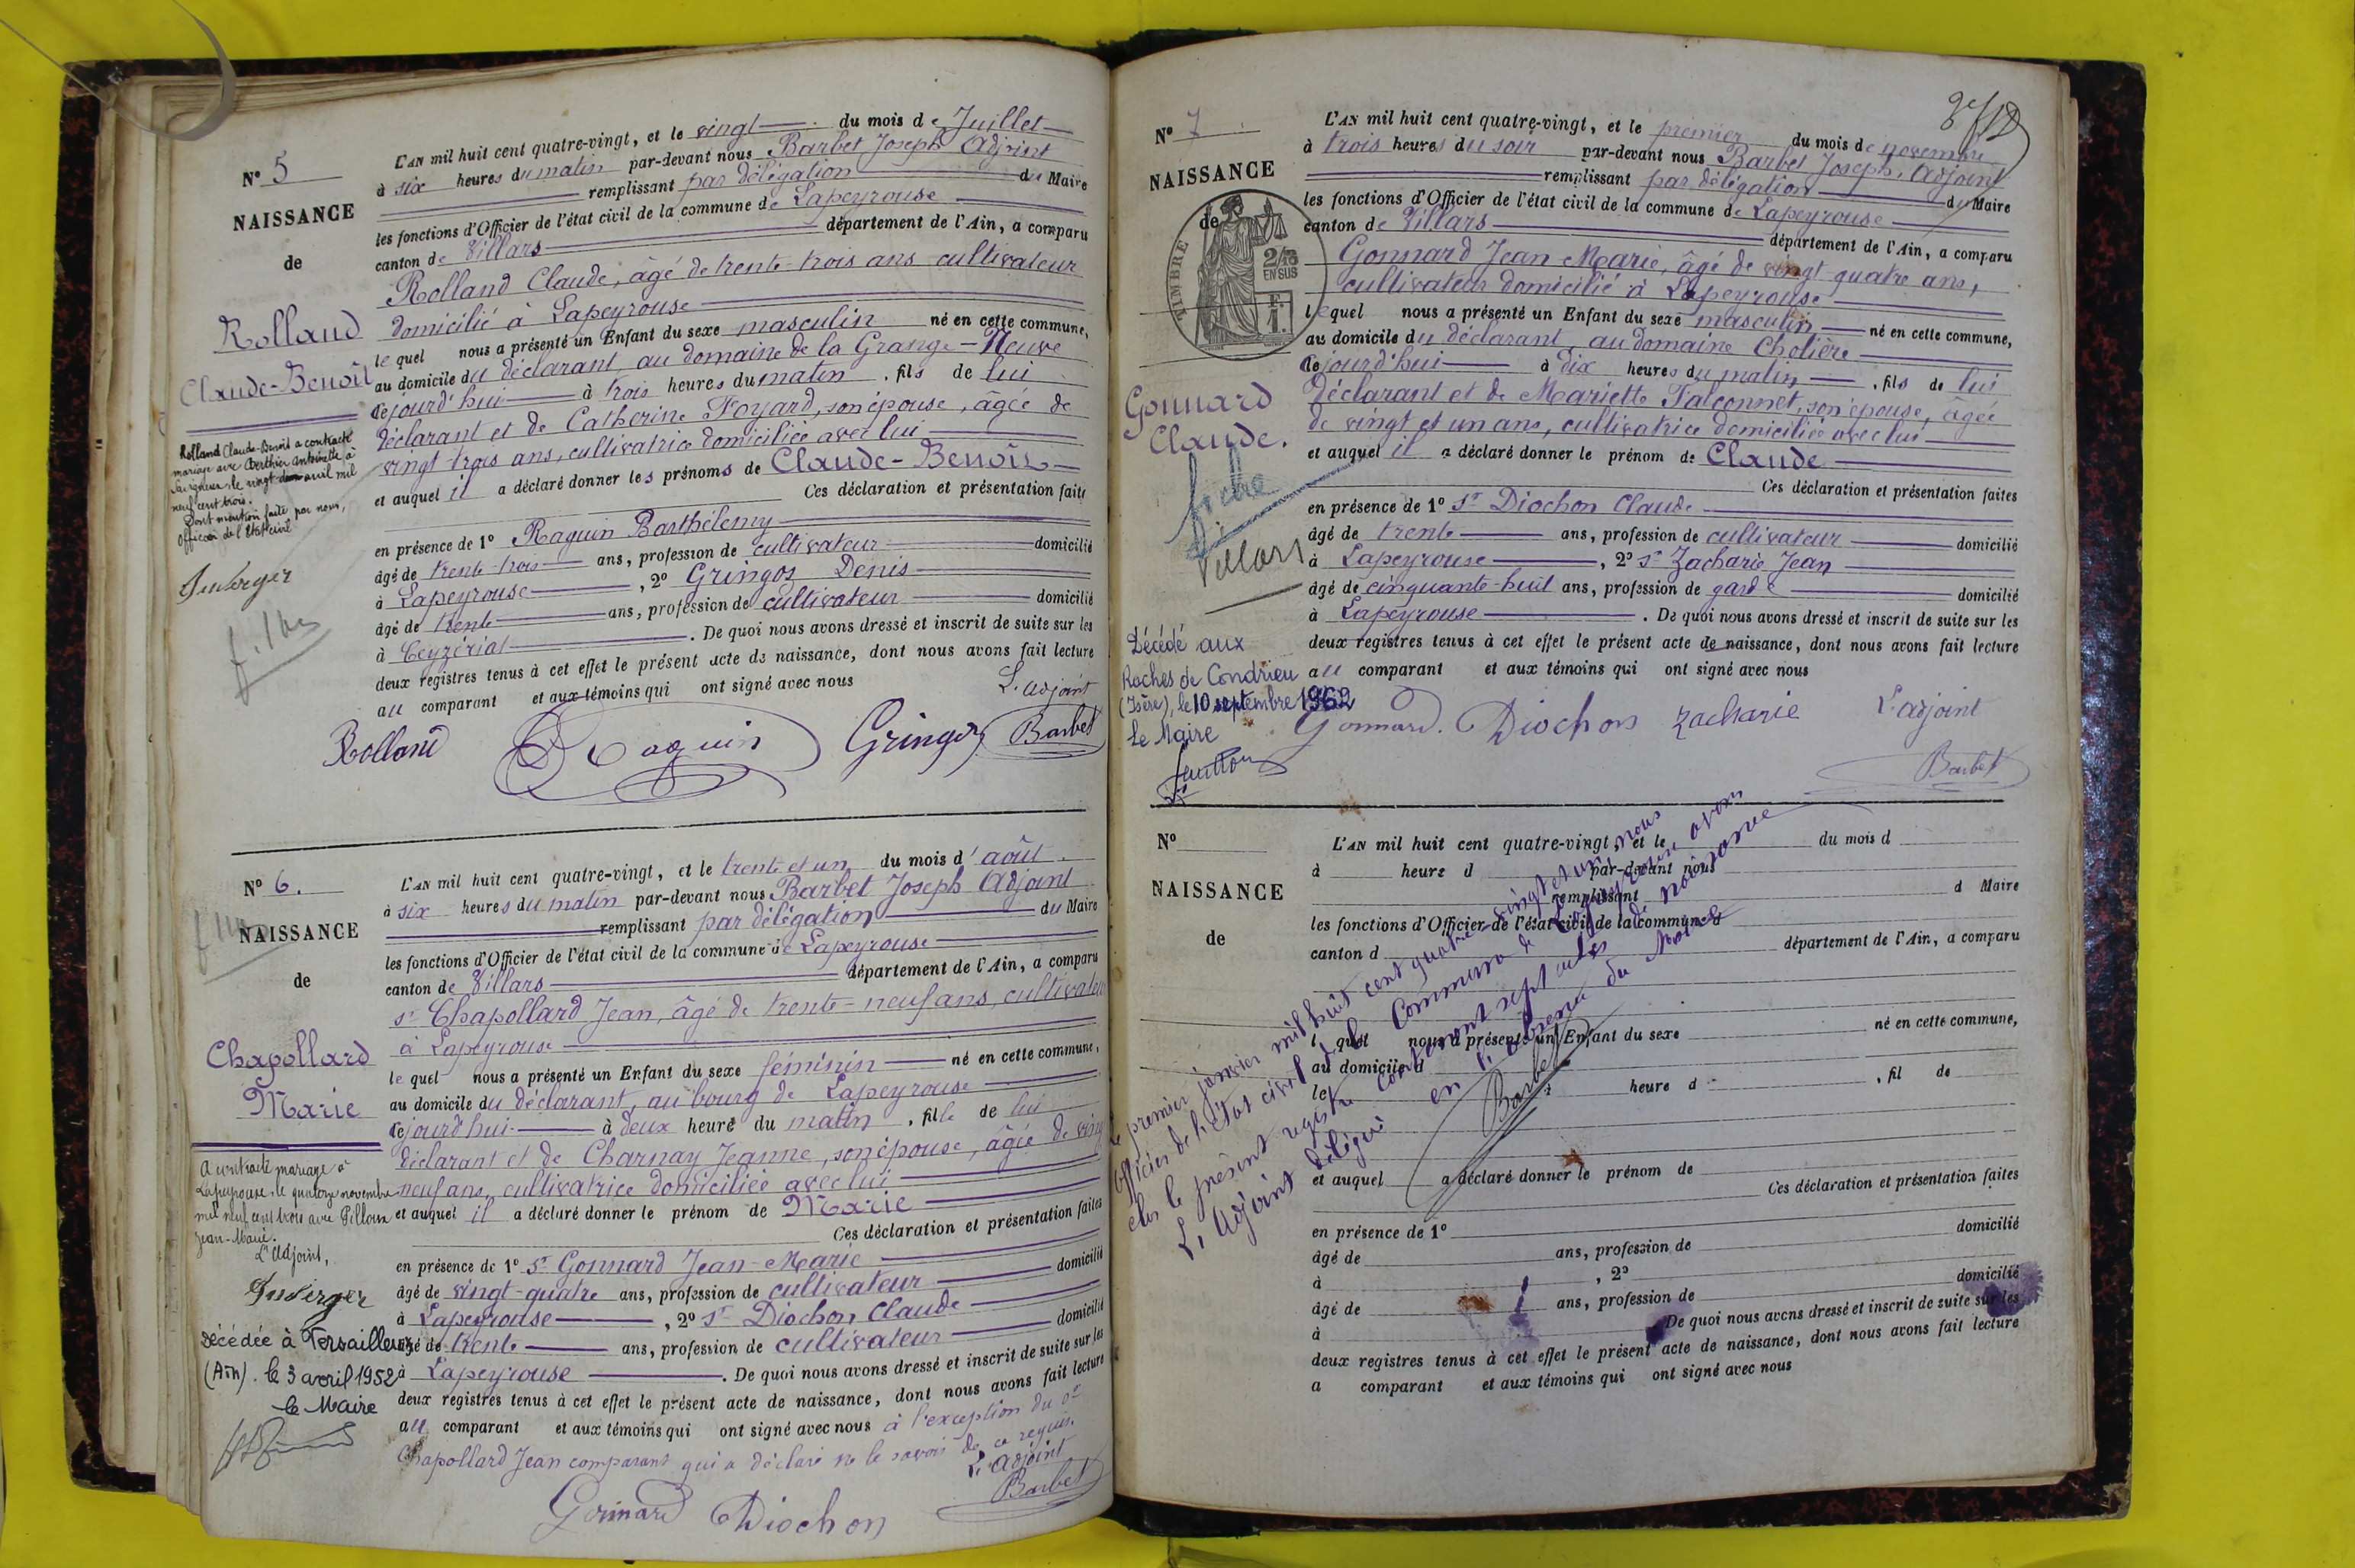 N° 5
NAISSANCE
de
Rolland
Claude-Benoît
Rolland Claude-Benoît a contracté
mariage avec Berthier Antoinette à
le vingt avril mil
neuf cent trois.
Dont mention faite par nous,
Officier de l'Etat civil
L'AN mil huit cent quatre-vingt, et le vingt du mois de Juillet
à six heures du matin par-devant nous Barbet Joseph Adjoint
remplissant par délégation du Maire
les fonctions d'Officier de l'état civil de la commune de Lapeyrouse
canton de Villars département de l'Ain, a comparu
Rolland Claude, âgé de trente-trois ans cultivateur
domicilié à Lapeyrouse
lequel nous a présenté un Enfant du sexe masculin né en cette commune,
au domicile du déclarant, au domaine de la Grange-Neuve
cejourd'hui à trois heures du matin, fils de lui
déclarant et de Catherine Foyard, son épouse, âgée de
vingt trois ans, cultivatrice domiciliée avec lui
et auquel il a déclaré donner les prénoms de Claude-Benoît
Ces déclaration et présentation faites
en présence de 1° Raquin Barthélemy
âgé de trente-trois ans, profession de cultivateur domicilié
à Lapeyrouse, 2° Gringoz Denis
âgé de trente ans, profession de cultivateur domicilié
à Ceyzériat. De quoi nous avons dressé et inscrit de suite sur les
deux registres tenus à cet effet le présent acte de naissance, dont nous avons fait lecture
au comparant et aux témoins qui ont signé avec nous
L'adjoint
Rolland Raquin Gringoz Barbet
N° 6.
NAISSANCE
de
Chapollard
Marie
A contracté mariage à
Lapeyrouse, le quatorze novembre
mil neuf cent trois avec Pilloux
Jean-Marie.
L'Adjoint,
Décédée à Versailleux
(Ain). le 3 avril 1952
le Maire
L'AN mil huit cent quatre-vingt, et le trente et un du mois d'août
à six heures du matin par-devant nous Barbet Joseph Adjoint
remplissant par délégation du Maire
les fonctions d'Officier de l'état civil de la commune de Lapeyrouse
canton de Villars département de l'Ain, a comparu
sr Chapollard Jean, âgé de trente-neuf ans, cultivateur
à Lapeyrouse
lequel nous a présenté un Enfant du sexe féminin né en cette commune,
au domicile du déclarant, au bourg de Lapeyrouse
cejourd'hui à deux heures du matin, fille de lui
déclarant et de Charnay Jeanne, son épouse, âgée de vingt
neuf ans, cultivatrice domiciliée avec lui
et auquel il a déclaré donner le prénom de Marie
Ces déclaration et présentation faites
en présence de 1° sr Gonnard Jean-Marie
âgé de vingt-quatre ans, profession de cultivateur domicilié
à Lapeyrouse, 2° sr Diochon Claude
âgé de trente ans, profession de cultivateur domicilié
à Lapeyrouse. De quoi nous avons dressé et inscrit de suite sur les
deux registres tenus à cet effet le présent acte de naissance, dont nous avons fait lecture
au comparant et aux témoins qui ont signé avec nous à l'exception du sr
Chapollard Jean comparant qui a déclaré ne le savoir de ce requis.
L'adjoint
Barbet
Gonnard Diochon
N° 7
NAISSANCE
de
TIMBRE
2/10
EN SUS
Gonnard
Claude.
fiche
Villars
Décédé aux
Roches de Condrieu
(Isère), le 10 septembre 1962
Le Maire
L'AN mil huit cent quatre-vingt, et le premier du mois de novembre
à trois heures du soir par-devant nous Barbet Joseph, Adjoint
remplissant par délégation du Maire
les fonctions d'Officier de l'état civil de la commune de Lapeyrouse
canton de Villars département de l'Ain, a comparu
Gonnard Jean Marie, âgé de vingt-quatre ans,
cultivateur domicilié à Lapeyrouse
lequel nous a présenté un Enfant du sexe masculin né en cette commune,
au domicile du déclarant, au domaine Cholière
cejourd'hui à dix heures du matin, fils de lui
déclarant et de Mariette Falconnet, son épouse, âgée
de vingt et un ans, cultivatrice domiciliée avec lui
et auquel il a déclaré donner le prénom de Claude
Ces déclaration et présentation faites
en présence de 1° sr Diochon Claude
âgé de trente ans, profession de cultivateur domicilié
à Lapeyrouse, 2° sr Zacharie Jean
âgé de cinquante-huit ans, profession de garde domicilié
à Lapeyrouse. De quoi nous avons dressé et inscrit de suite sur les
deux registres tenus à cet effet le présent acte de naissance, dont nous avons fait lecture
au comparant et aux témoins qui ont signé avec nous
Gonnard. Diochon Zacharie L'adjoint
Barbet
N°
NAISSANCE
de
L'AN mil huit cent quatre-vingt, et le du mois d
à heure d par-devant nous
remplissant d Maire
les fonctions d'Officier de l'état civil de la commune d
canton d département de l'Ain, a comparu
l quel nous a présenté un Enfant du sexe né en cette commune,
au domicile d
le heure d , fil de
et auquel a déclaré donner le prénom de
Ces déclaration et présentation faites
en présence de 1° domicilié
âgé de ans, profession de
à , 2° domicilié
âgé de ans, profession de
à De quoi nous avons dressé et inscrit de suite sur les
deux registres tenus à cet effet le présent acte de naissance, dont nous avons fait lecture
a comparant et aux témoins qui ont signé avec nous
Le premier janvier mil huit cent quatre-vingt et un, nous
Officier de l'état civil de la Commune de Lapeyrouse avons
clos le présent registre contenant sept actes de naissance
L'Adjoint délégué en l'absence du Maire
Barbet